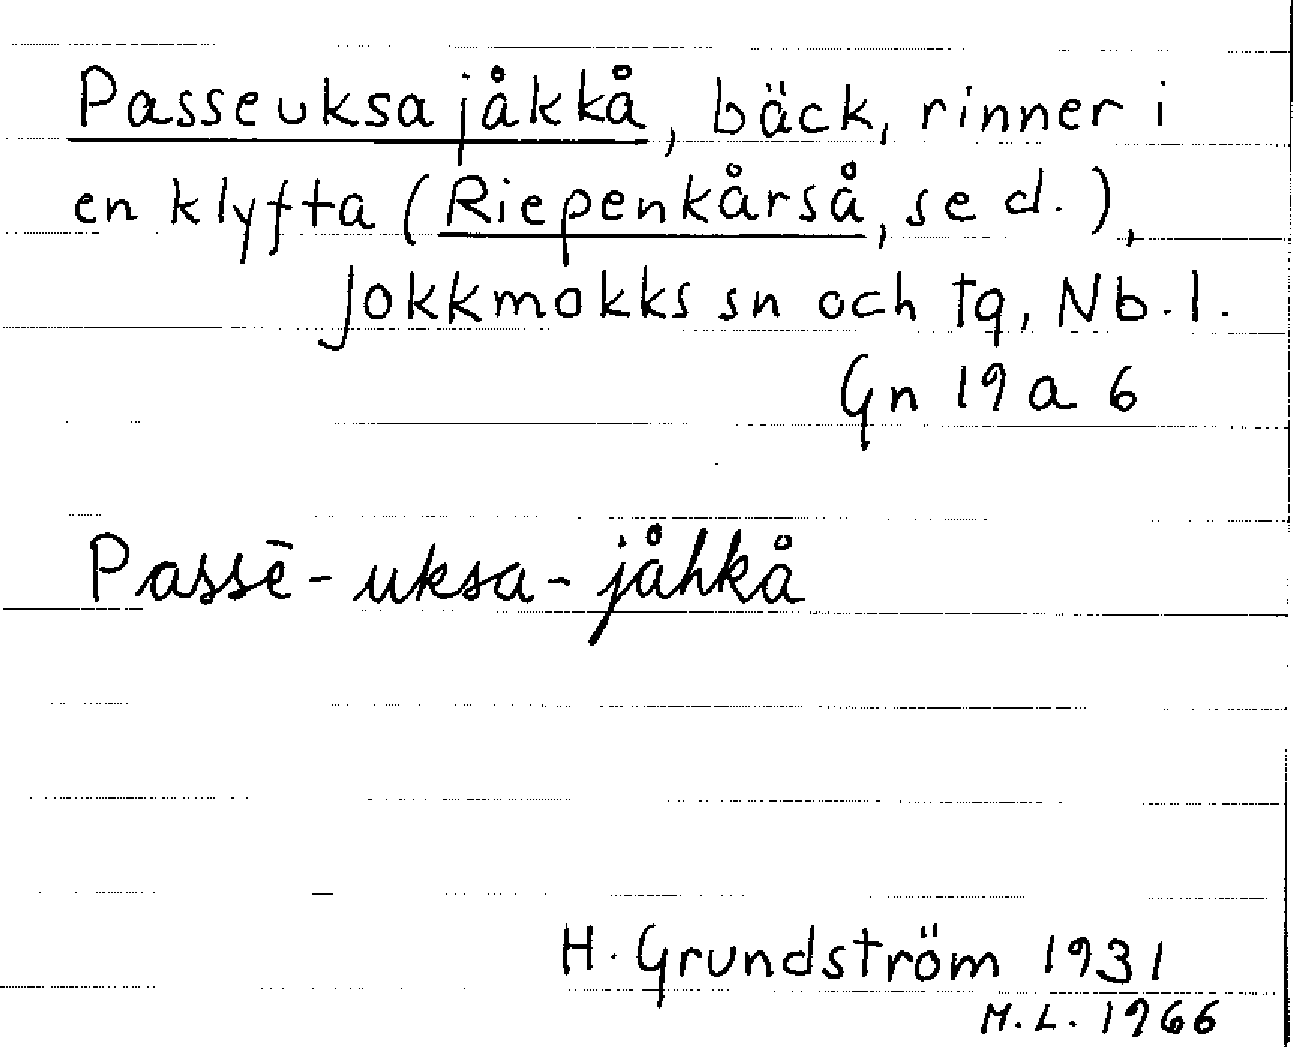 Passeuksajåkkå, bäck, rinner i
en klyfta (Riepenkårså, se d.),
Jokkmokks sn och tg, Nb.l.
Gn 19 a 6
Passē-uksa-jåhkå
H. Grundström 1931
M.L. 1966